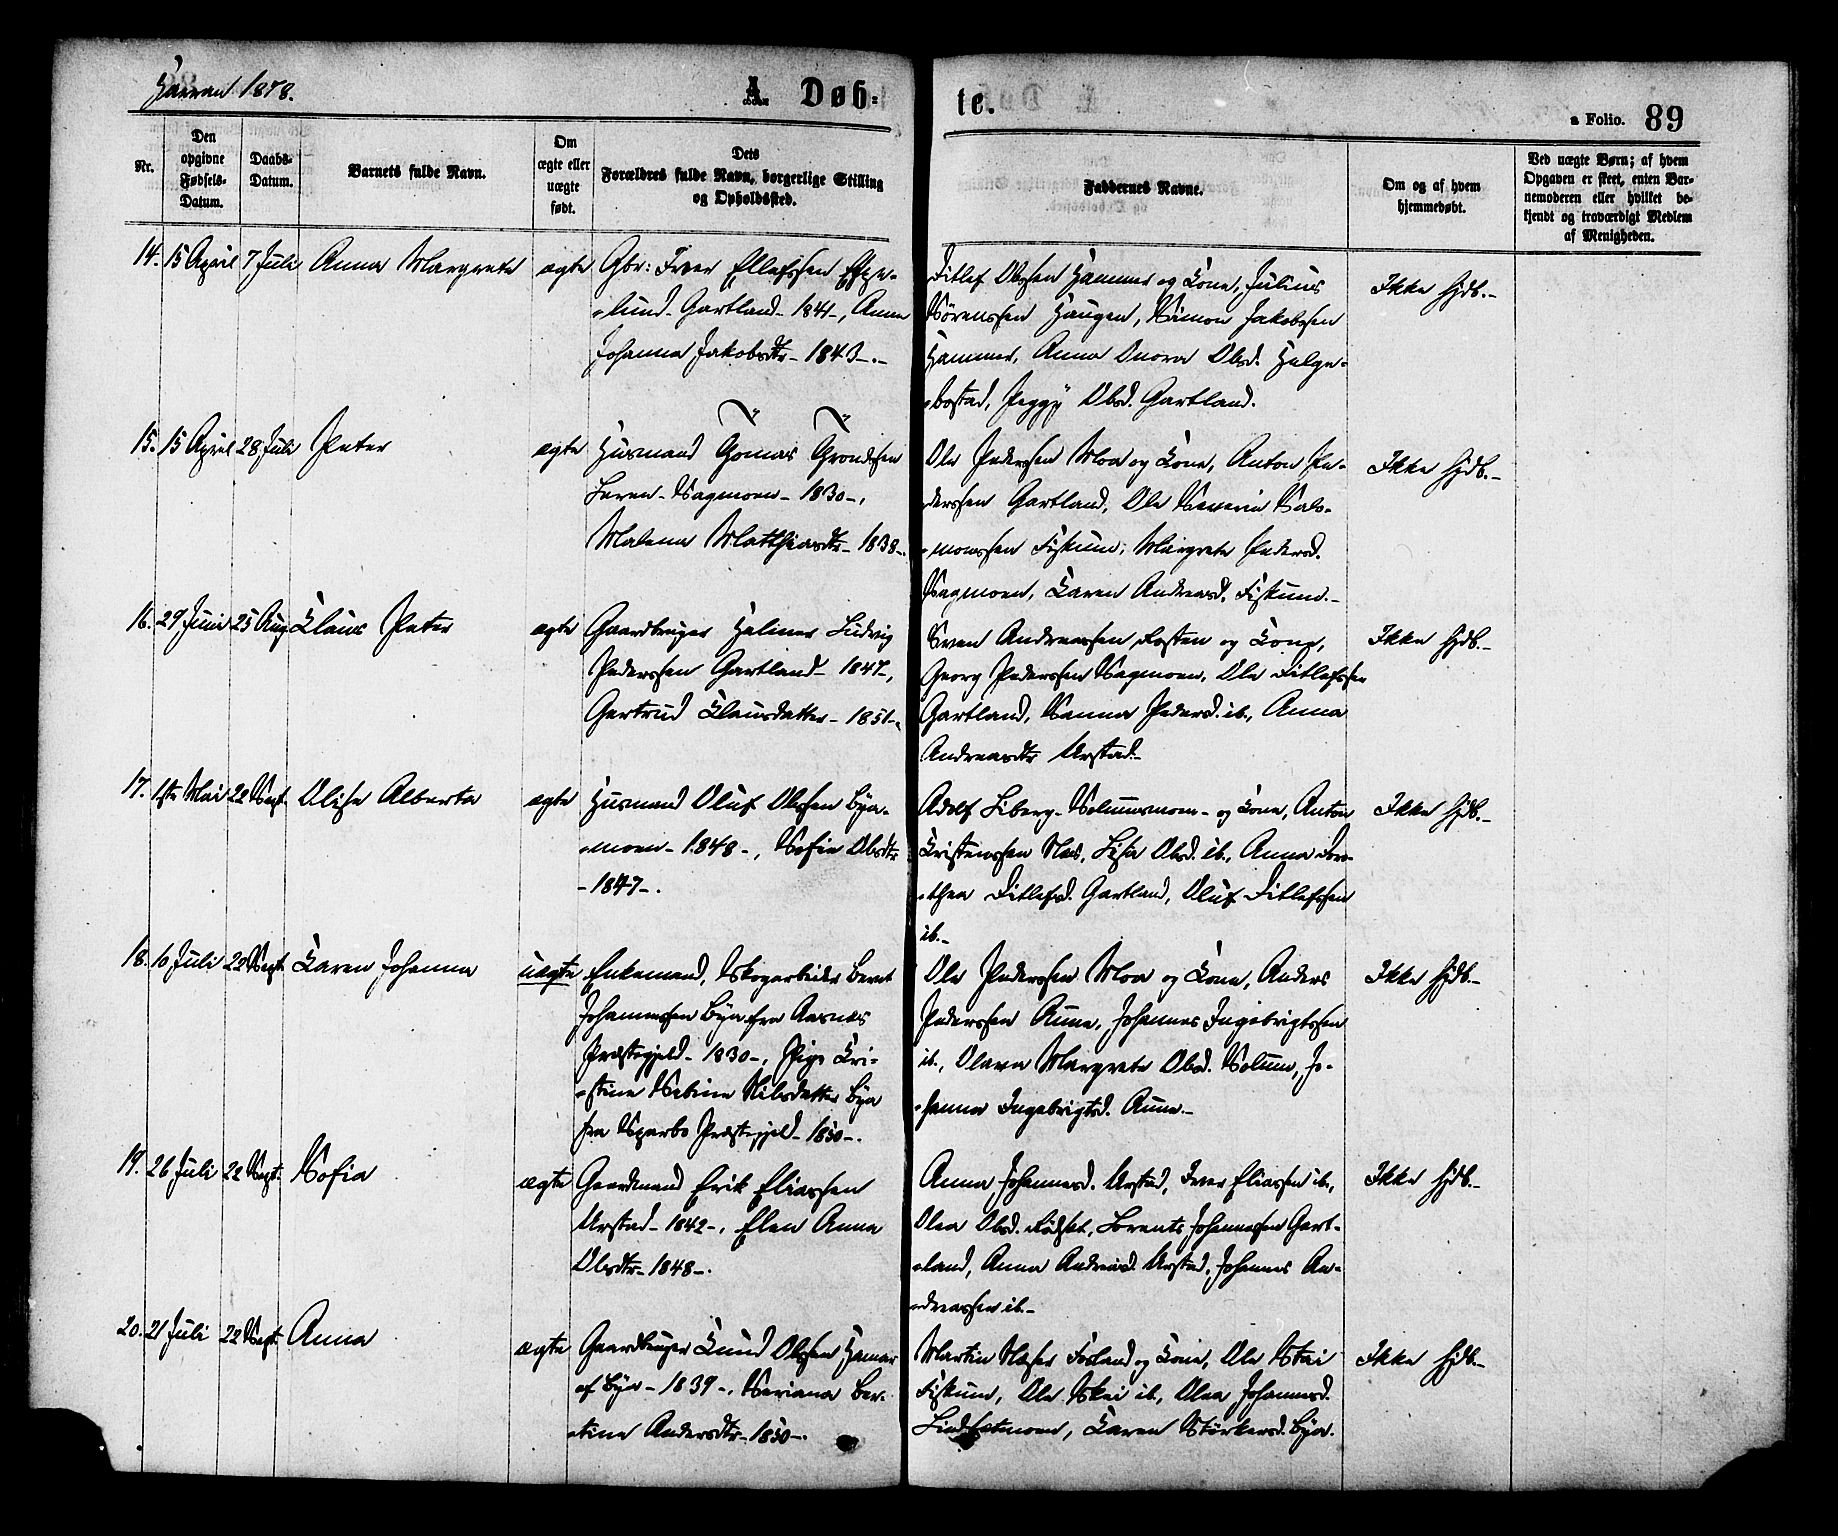 Harran 1878.
A. Døb-
te.
a Folio. 89
Nr.
Den opgivne Fødsels-Datum.
Daabs-Datum.
Barnets fulde Navn.
Om ægte eller uægte født.
Dets Forældres fulde Navn, borgerlige Stilling og Opholdssted.
Faddernes Navne.
Om og af hvem hjemmedøbt.
Ved uægte Børn; af hvem Opgaven er skeet, enten Barnemoderen eller hvilket bekjendt og troværdigt Medlem af Menigheden.
14. 15 April 7 Juli Anna Margrete ægte Gbr: Iver Ellefssen Espe-
lund - Gartland - 1841 -, Anne
Johanna Jakobsdtr - 1843 -.-
Ditlef Olssen Hammer og Kone, Julius
Sørenssen Haugen, Simon Jakobssen
Hammer, Anna Onora Olsd. Helge-
bostad, Peggy Olsd. Gartland.
Ikke hjdb.-
15. 15 April 28 Juli Peter ægte Husmand Tomas Trondssen
Leren - Sagmoen - 1830 -,
Malena Matthiasdtr - 1838 -.
Ole Pederssen Moa og Kone, Anton Pe-
derssen Gartland, Ole Severin Salo-
monssen Fiskum, Margrete Pedersd.
Sagmoen, Karen Andreasd. Fiskum.-
Ikke hjdb.-
16. 29 Juni 25 Aug. Klaus Peter ægte Gaardbruger Halmer Ludvig
Pederssen Gartland - 1847 -,
Gertrud Klausdatter - 1851 -.
Sven Andreassen Rosten og Kone,
Georg Pederssen Sagmoen, Ole Ditlefssen
Gartland, Sanna Pedersd. ib., Anna
Andreasdtr Urstad.-
Ikke hjdb.-
17. 1ste Mai 22 Sept. Olise Alberta ægte Husmand Oluf Olssen Bya-
moen - 1848 -, Sofie Olsdtr
- 1847 -.
Adolf Liberg - Solumsmoen - og Kone, Anton
Kristenssen Næs, Lisa Olsd. ib., Anna Doro-
thea Ditlefsd. Gartland, Oluf Ditlefssen
ib.-
Ikke hjdb.-
18. 10 Juli 22 Sept. Karen Johanna uægte Enkemand, Skogarbeider Bernt
Johannessen Bya fra Aasnes
Præstegjeld - 1830 -, Pige Kri-
stine Sabine Nilsdatter Bya
fra Sparbo Præstegjeld - 1850 -.
Ole Pederssen Moa og Kone, Anders
Pederssen Aune, Johannes Ingebrigtssen
ib., Olava Margrete Olsd. Solum, Jo-
hanna Ingebrigtsd. Aune.-
Ikke hjdb.-
19. 26 Juli 22 Sept. Sofia ægte Gaardmand Erik Eliassen
Urstad - 1842 -, Elen Anna
Olsdtr - 1848 -.
Anna Johannesd. Urstad, Iver Eliassen ib.,
Olea Olsd. Lorents Johannessen Gart-
land, Anna Andreasd. Urstad, Johannes An-
dreassen ib.-
Ikke hjdb.-
20. 21 Juli 22 Sept. Anna ægte Gaardbruger Knud Olssen Hamar
af Bya - 1839 -, Seriana Ber-
tine Andersdtr - 1850 -.
Martin Fosland og Kone, Ole Skai
Fiskum, Ole Skai ib., Olea Johannesd.
Lindsetmoen, Karen Størkersd. Bya.
Ikke hjdb.-